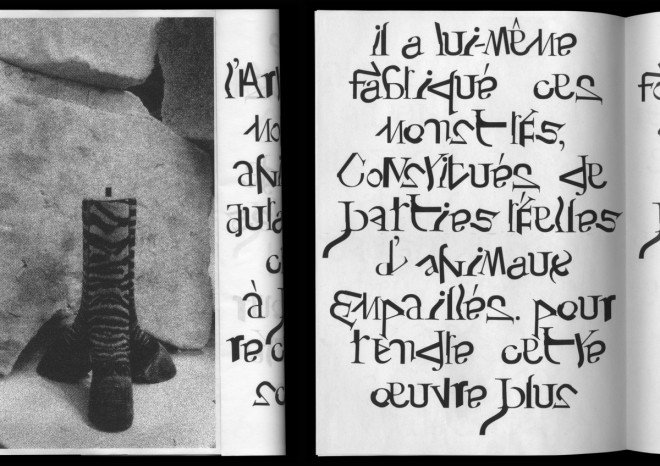 il a lui-même
fabriqué ces
monstres,
constitués de
parties réelles
d'animaux
empaillés. pour
rendre cette
œuvre plus